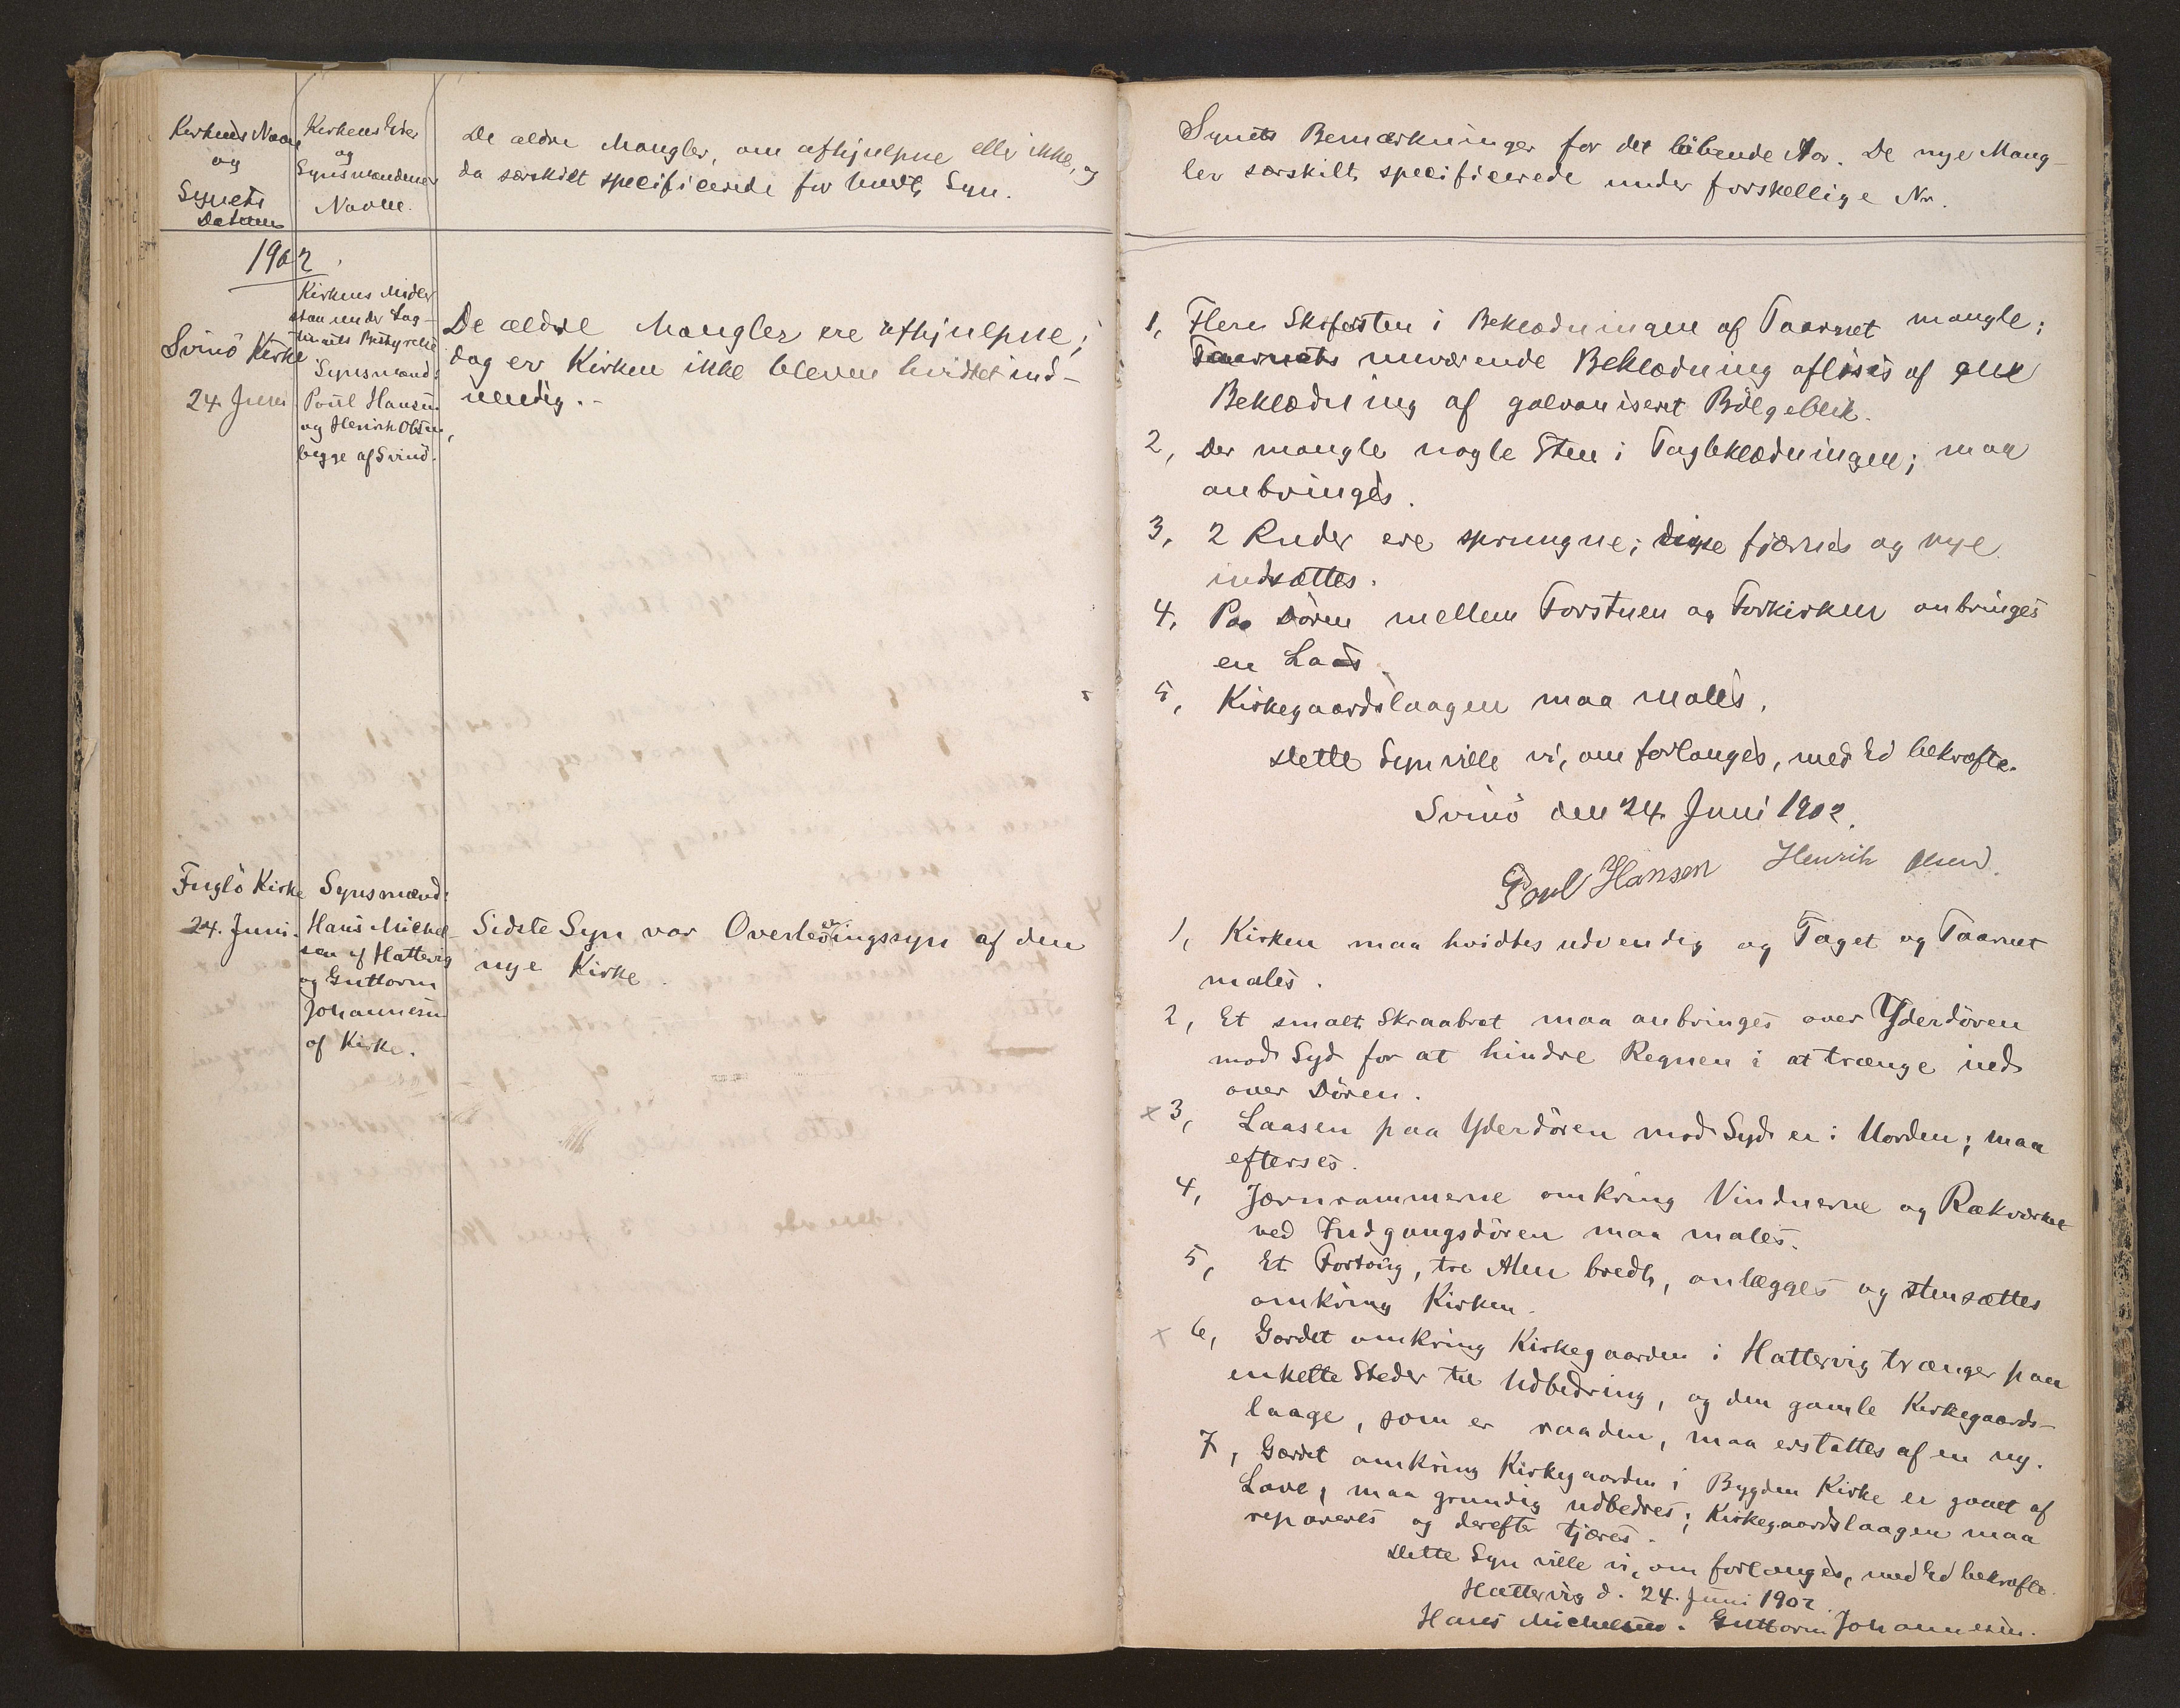 Kirkens Navn
og
Synets
Datum
Kirkens Eier
og
Synsmændenes
Navne.
De ældre Mangler, om afhjulpne eller ikke, og
da særskilt specificerede for hvert Syn.
1902
Svinö Kirke
24. Juni
Kirkens Midler
staa under Lag-
tingets Bestyrelse
Synsmænd:
Poul Hansen
og Henrik Olsen,
begge af Svinö.
De ældre Mangler ere afhjulpne;
dog er Kirken ikke bleven hvidtet ind-
vendig.-
Fuglö Kirke
24. Juni.
Synsmænd:
Hans Michel-
sen af Hattervig
og Guttorm
Johannesen
af Kirke.
Sidste Syn var Overleveringssyn af den
nye Kirke.
Synets Bemærkninger for det löbende Aar. De nye Mang-
ler særskilt specificerede under forskellige Nr.
1, Flere Skifersten i Beklædningen af Taarnet mangle;
Taarnets nuværende Beklædning aflöses af en
Beklædning af galvaniseret Bölgeblik.
2, Der mangle nogle Sten i Tagbeklædningen; maa
anbringes.
3, 2 Ruder ere sprungne; disse fjærnes og nye
indsættes.
4, Paa Dören mellem Forstuen og Forkirken anbringes
en Laas.
5, Kirkegaardslaagen maa males.
Dette Syn ville vi, om forlanges, med Ed bekræfte.
Svinö den 24. Juni 1902.
Poul Hansen Henrik Olsen.
1, Kirken maa hvidtes udvendig og Taget og Taarnet
males.
2, Et smalt Skraabret maa anbringes over Yderdören
mod Syd for at hindre Regnen i at trænge ind
over Dören.
x 3, Laasen paa Yderdören mod Syd er i Uorden; maa
efterses.
4, Jærnrammerne omkring Vinduerne og Rækværket
ved Indgangsdören maa males.
5, Et Fortoug, tre Alen bredt, anlægges og stensættes
omkring Kirken.
x 6, Gærdet omkring Kirkegaarden i Hattervig trænger paa
enkelte Steder til Udbedring, og den gamle Kirkegaards-
laage, som er raaden, maa erstattes af en ny.
7, Gærdet omkring Kirkegaarden i Bygden Kirke er gaaet af
Lave, maa grundig udbedres; Kirkegaardslaagen maa
repareres og derefter tjæres.
Dette Syn ville vi, om forlanges, med Ed bekræfte.
Hattervig d. 24. Juni 1902.
Hans Michelsen. Guttorm Johannesen.